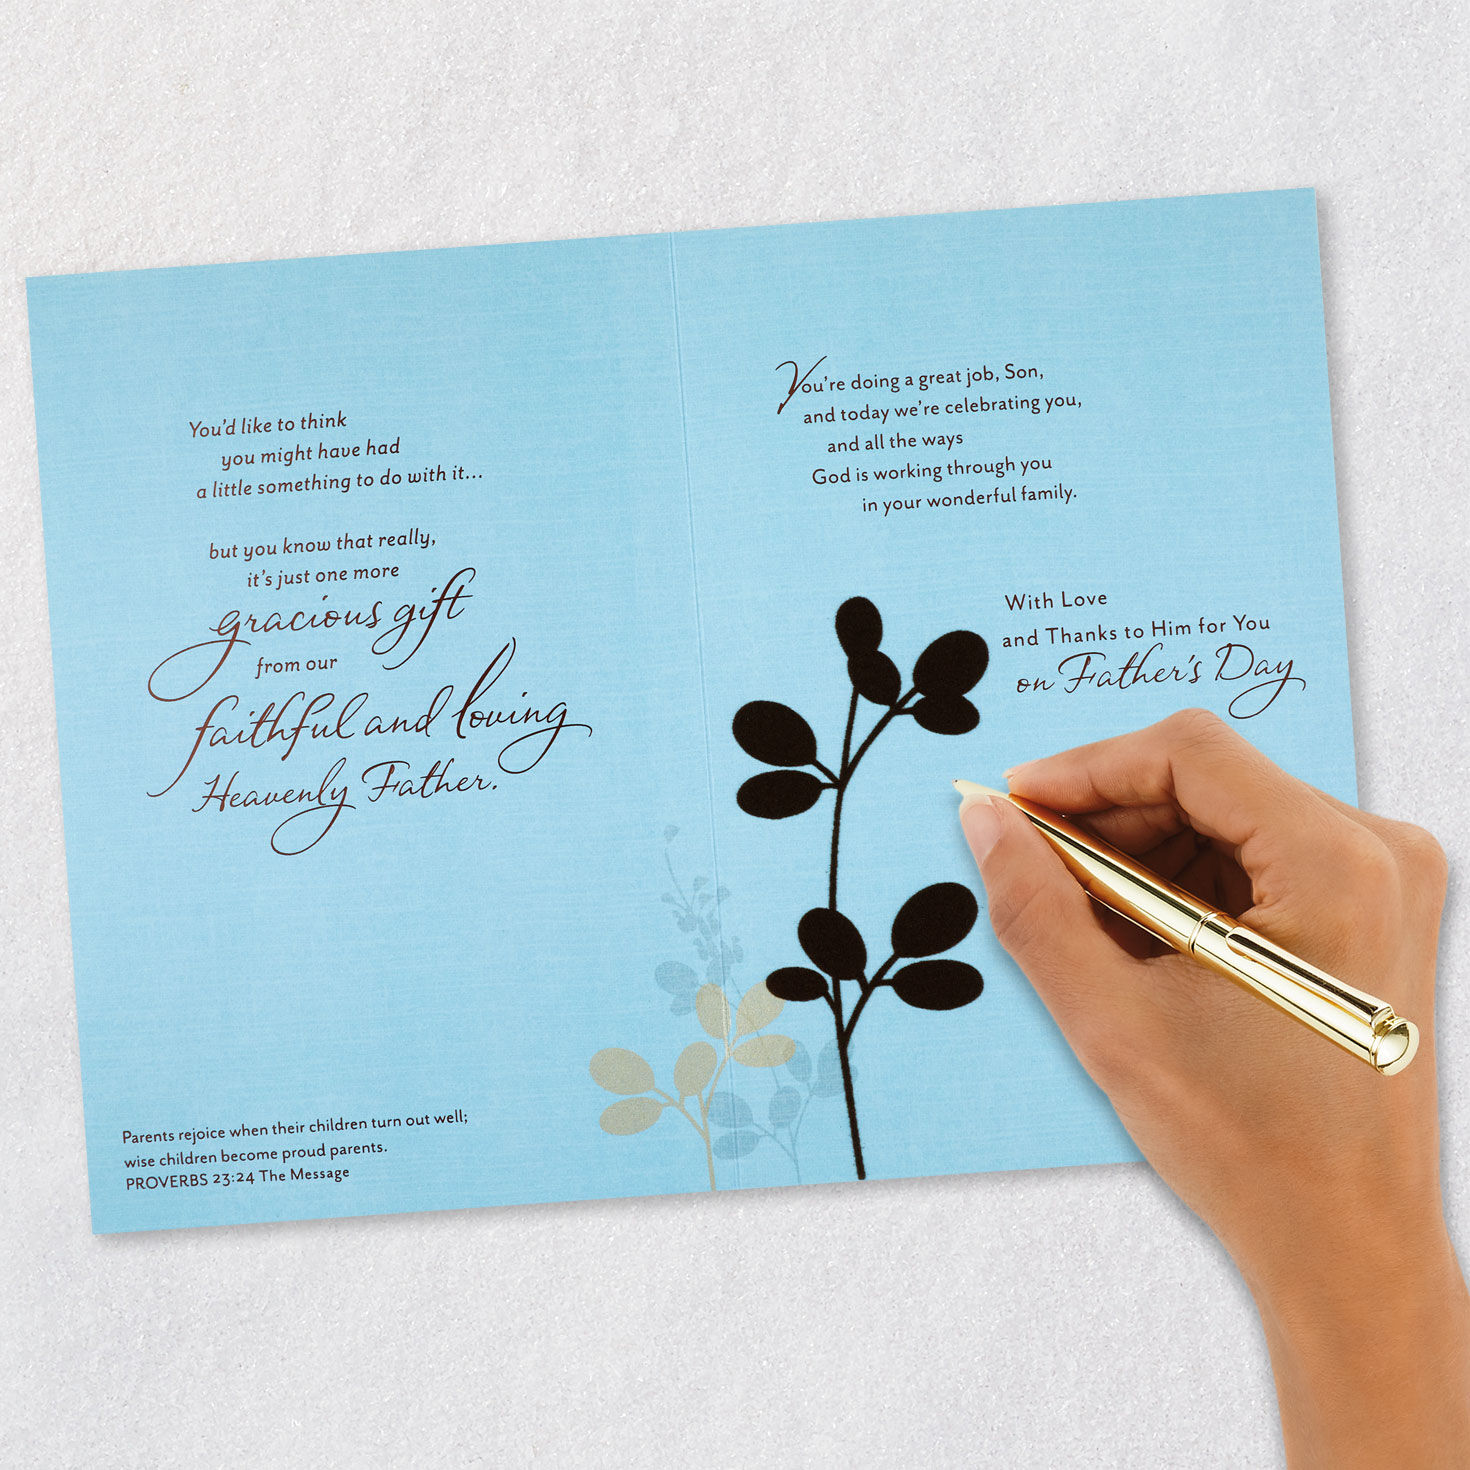 You'd like to think
you might have had
a little something to do with it...
but you know that really,
it's just one more
gracious gift
from our
faithful and loving
Heavenly Father.
Parents rejoice when their children turn out well;
wise children become proud parents.
PROVERBS 23:24 The Message
You're doing a great job, Son,
and today we're celebrating you,
and all the ways
God is working through you
in your wonderful family.
With Love
and Thanks to Him for You
on Father's Day